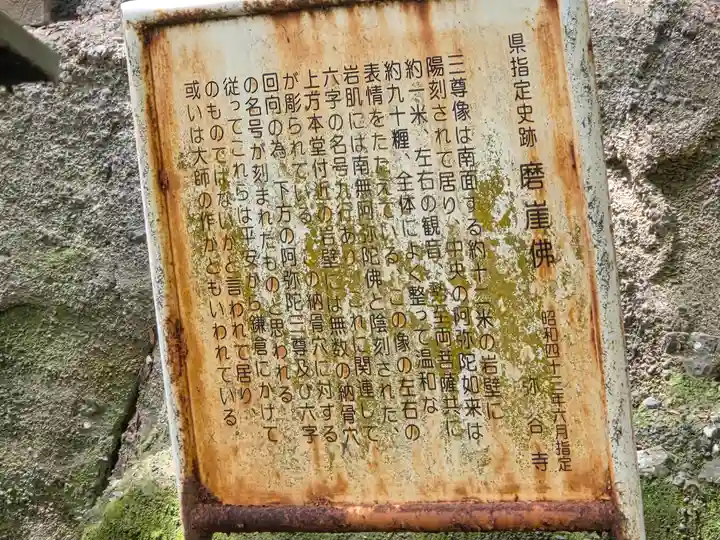 県指定史跡 磨崖佛
昭和四十二年六月指定
弥谷寺
三尊像は南面する約十二米の岩壁に
陽刻されて居り、中央の阿弥陀如来は
約一米、左右の観音、勢至両菩薩共に
約九十糎、全体によく整って温和な
表情をたたえている。この像の左右の
岩肌には南無阿弥陀佛と陰刻された、
六字の名号九行あり、これに関連して
上方本堂付近の岩壁には無数の納骨穴
が彫られている。の納骨穴に対する
回向の為、下方の阿弥陀三尊及び六字
の名号が刻まれたものと思われる。
従ってこれらは平安から鎌倉にかけて
のものではないかと言われて居り、
或いは大師の作かともいわれている。